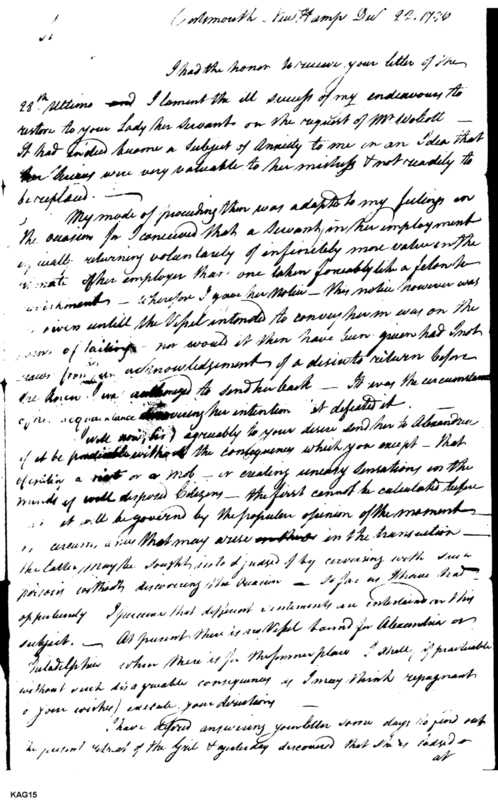 Portsmouth New Hamp Dec 22. 1796
I had the honor to receive your letter of the
28th Ultimo and I lament the ill success of my endeavours to
restore to your Lady her servant on the request of Mr Wolcott —
It had indeed become a subject of Anxiety to me in an Idea that
her services were very valuable to her mistress & not readily to
be replaced. —
My mode of proceeding then was adapted to my feelings on
the occasion for I conceived that a Servant, in her employment
returning voluntarily of infinitely more value in the
of her employer than one taken forceably like a felon to
— therefore I gave her Notice — this notice however was
given untill the Vessel intended to convey her was on the
of sailing — nor would it then have been given had I not
from an acknowledgement of a desire to return before
authorized to send her back — It was the circumstance
acquaintance discovering her intention it defeated it.
I will now, Sir agreably to your desire send her to Alexandria
if it be practicable without the consequences which you except — that
of exciting a riot or a mob — or creating uneasy sensations in the
minds of well disposed Citizens — the first cannot be calculated before
it will be governed by the popular opinion of the moment —
circumstances that may arise in the transaction —
the latter may be sought into & judged of by conversing with such
persons without discovering the occasion — so far as I have had
oppertunity I perceive that different sentiments are entertained on this
subject. — At present there is no Vessel bound for Alexandria or
Philadelphia when there is for the former place I shall, if practicable
without such disagreable consequences as I may think repugnant
to your wishes) execute your directions —
I have defered answering your letter some days to find out
the present retreat of the Girl & yesterday discovered that she is
at
KAG15